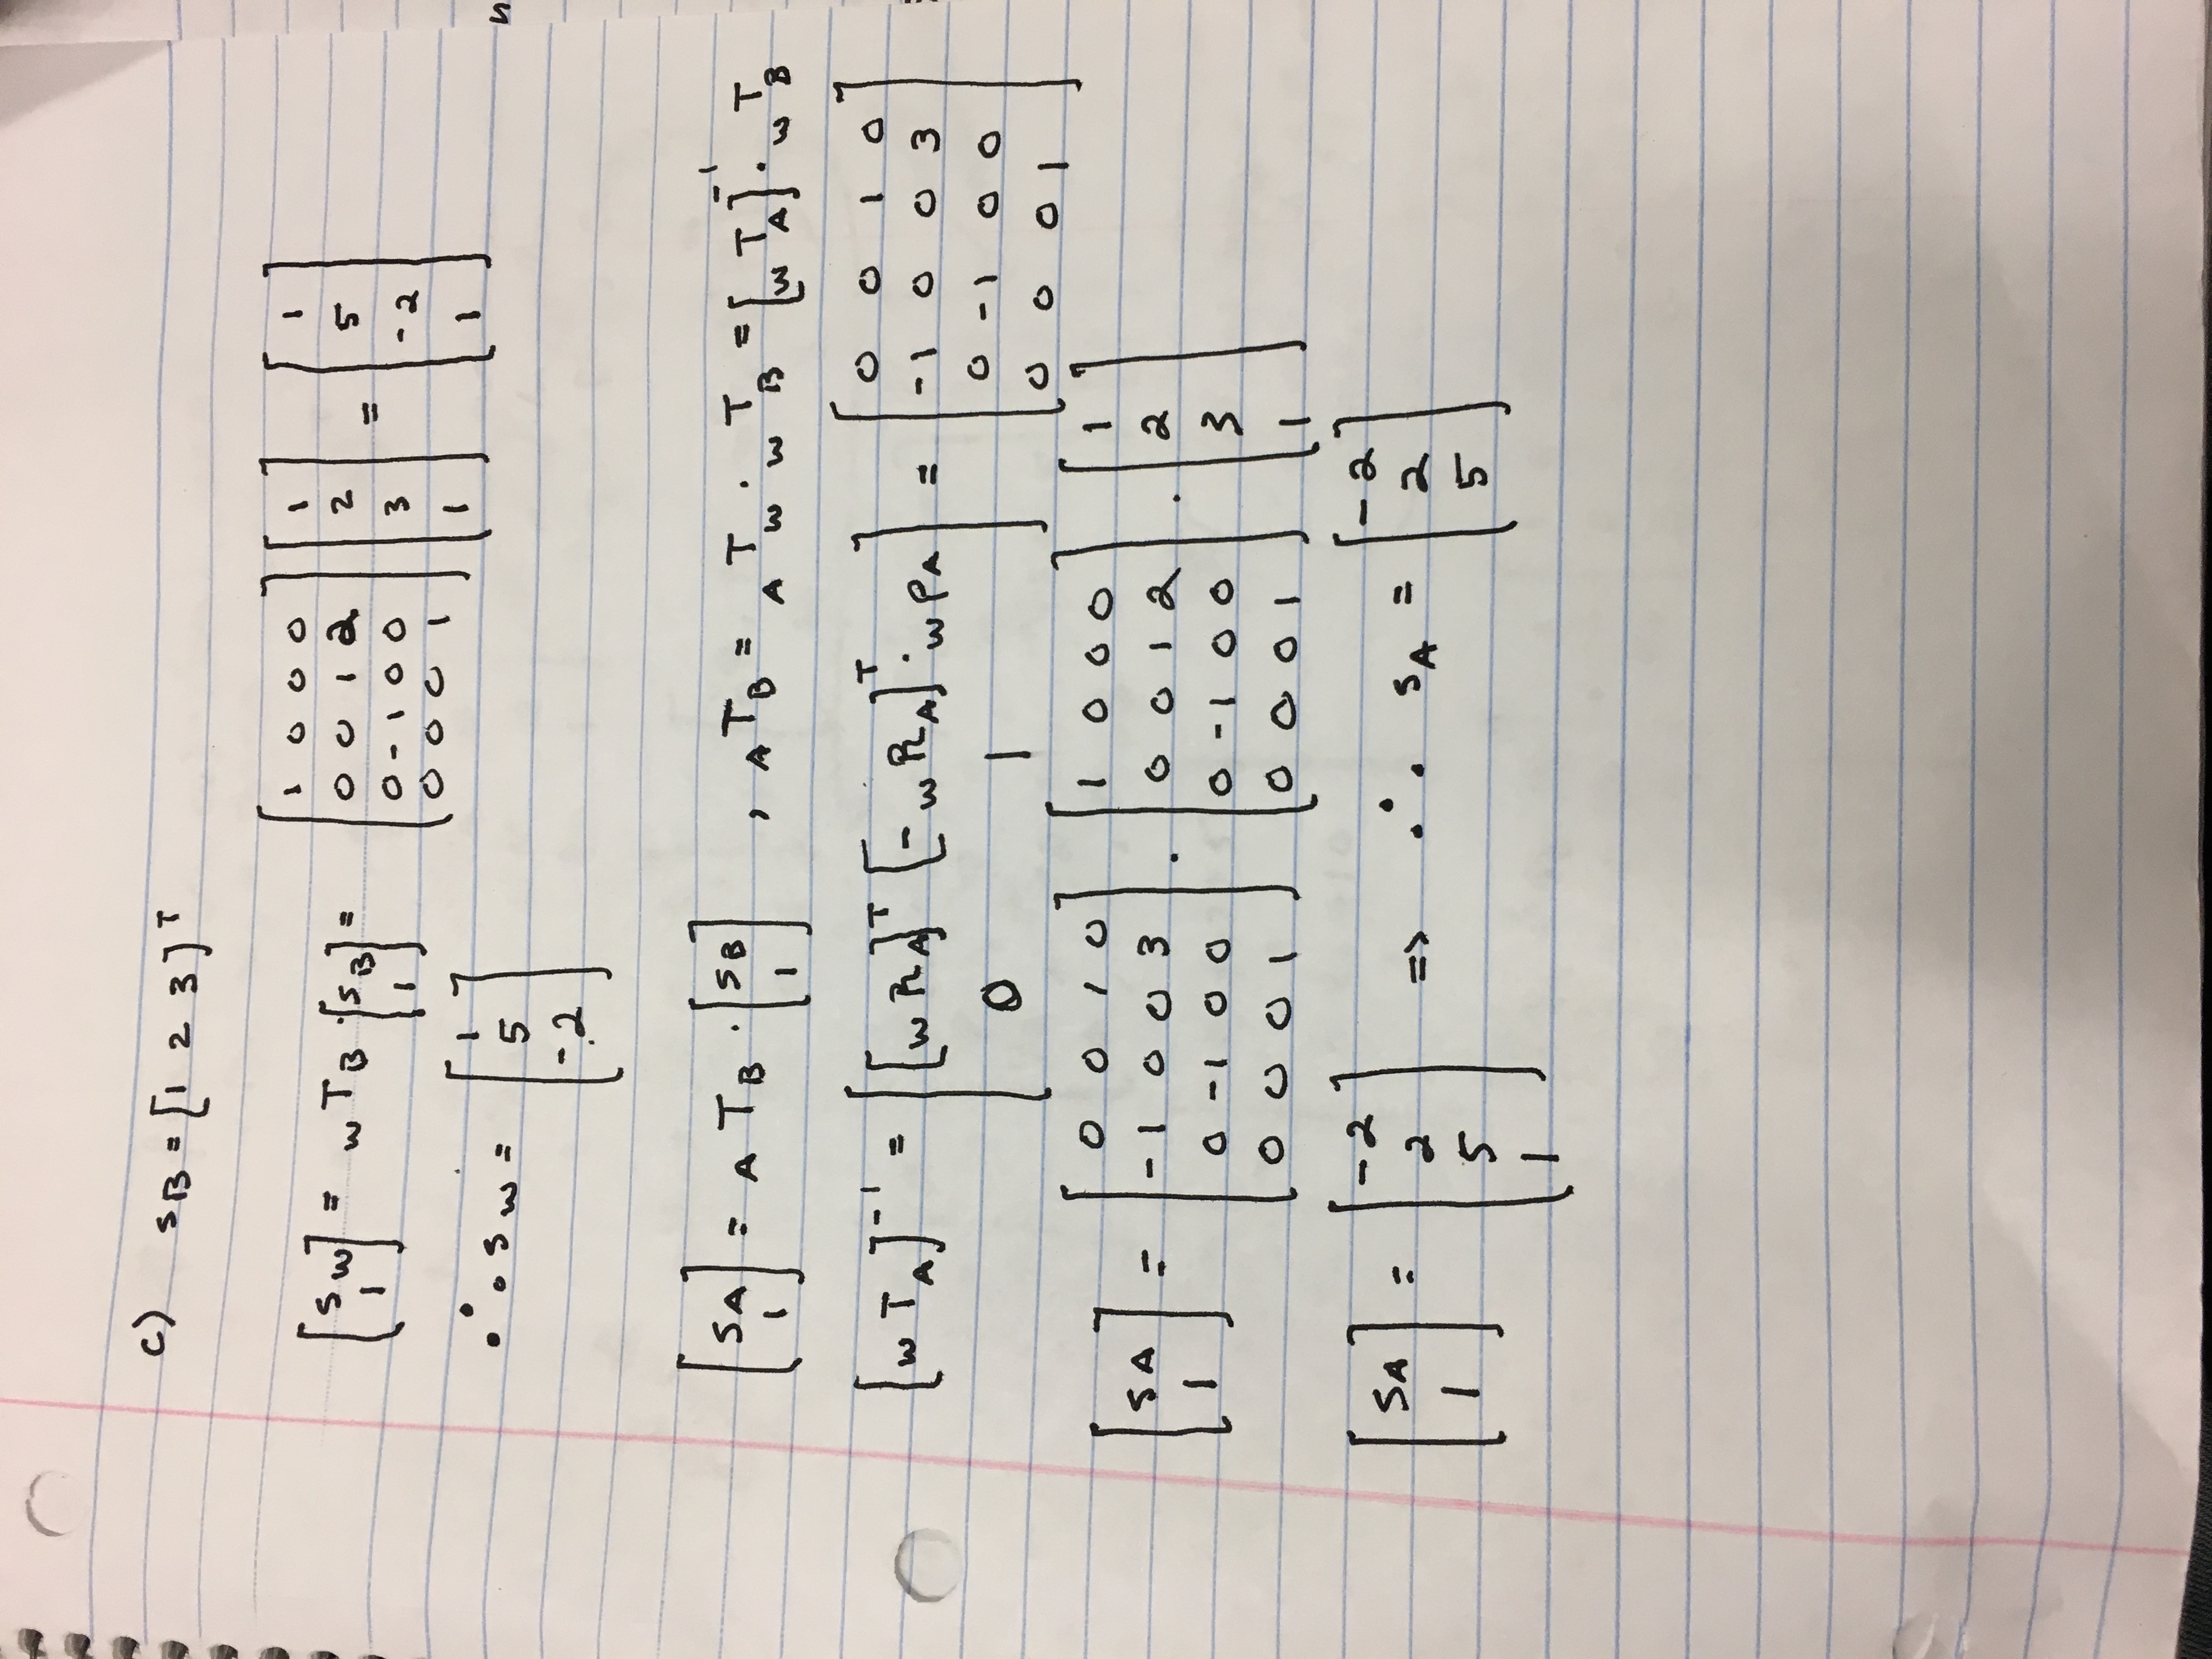 c) sB = [1 2 3]ᵀ
[sw 1] = wTB · [sB 1] = [1 0 0 0; 0 0 1 2; 0 -1 0 0; 0 0 0 1] [1 2 3 1] = [1 5 -2 1]
∴ sw = [1 5 -2]
[sA 1] = ATB · [sB 1] , ATB = ATw · wTB = [wTA]⁻¹ · wTB
[wTA]⁻¹ = [[wRA]ᵀ [-wRA]ᵀ · wPA; 0 1] = [0 0 1 0; -1 0 0 3; 0 -1 0 0; 0 0 0 1]
[sA 1] = [0 0 1 0; -1 0 0 3; 0 -1 0 0; 0 0 0 1] · [1 0 0 0; 0 0 1 2; 0 -1 0 0; 0 0 0 1] · [1 2 3 1]
[sA 1] = [-2 2 5 1] => ∴ sA = [-2 2 5]